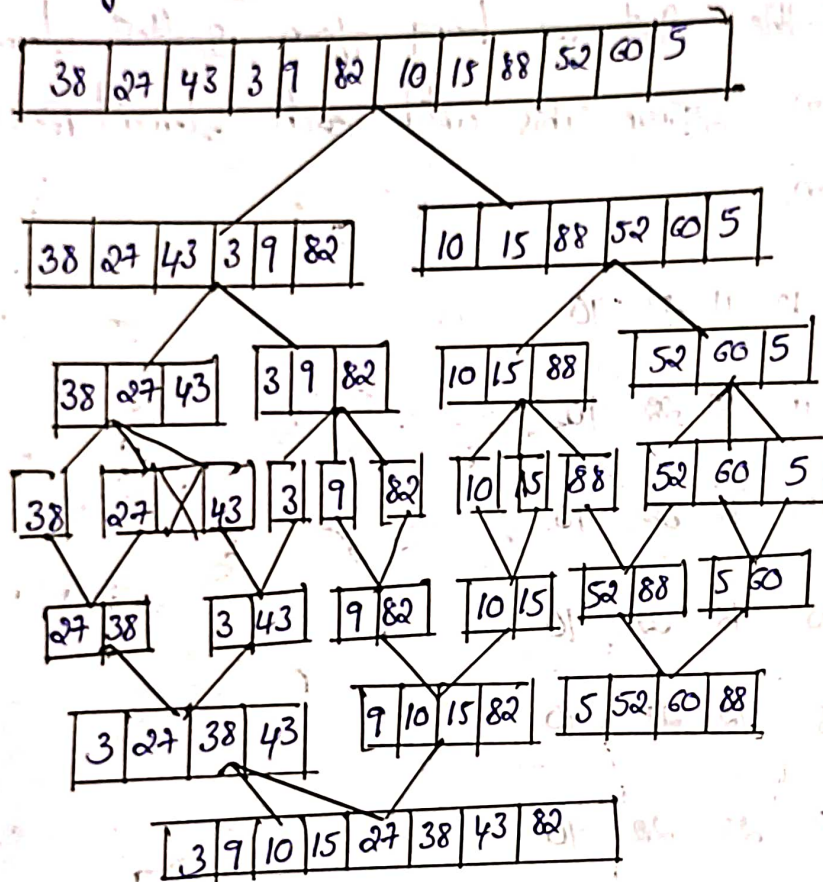 38 27 43 3 9 82 10 15 88 52 60 5
38 27 43 3 9 82 10 15 88 52 60 5
38 27 43 3 9 82 10 15 88 52 60 5
38 27 43 3 9 82 10 15 88 52 60 5
27 38 3 43 9 82 10 15 52 88 5 60
3 27 38 43 9 10 15 82 5 52 60 88
3 9 10 15 27 38 43 82